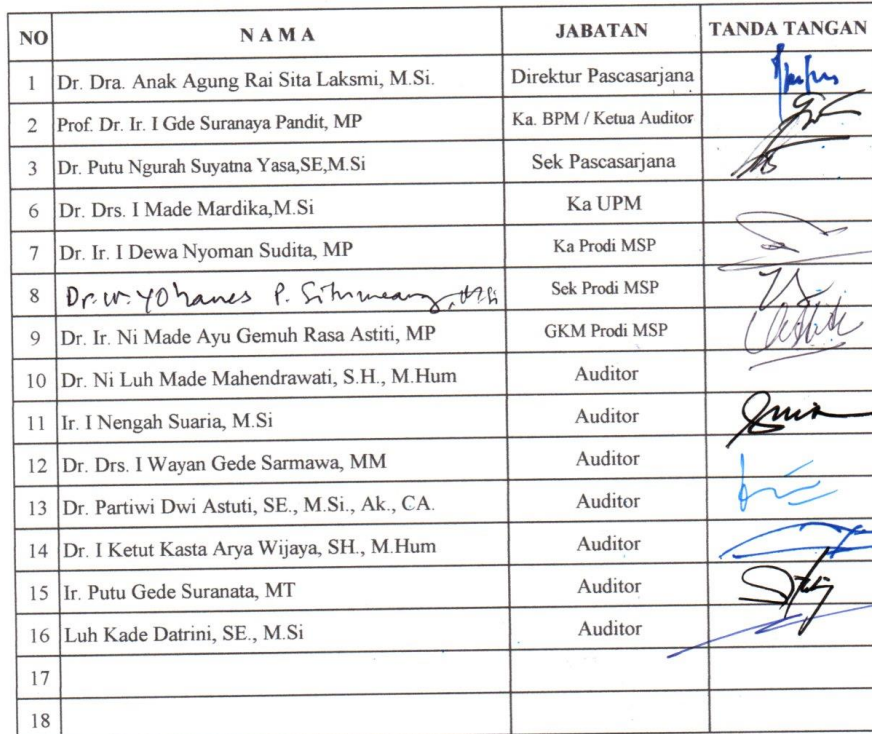 NO NAMA JABATAN TANDA TANGAN
1 Dr. Dra. Anak Agung Rai Sita Laksmi, M.Si. Direktur Pascasarjana
2 Prof. Dr. Ir. I Gde Suranaya Pandit, MP Ka. BPM / Ketua Auditor
3 Dr. Putu Ngurah Suyatna Yasa,SE,M.Si Sek Pascasarjana
6 Dr. Drs. I Made Mardika,M.Si Ka UPM
7 Dr. Ir. I Dewa Nyoman Sudita, MP Ka Prodi MSP
8 Yohanes P. Sek Prodi MSP
9 Dr. Ir. Ni Made Ayu Gemuh Rasa Astiti, MP GKM Prodi MSP
10 Dr. Ni Luh Made Mahendrawati, S.H., M.Hum Auditor
11 Ir. I Nengah Suaria, M.Si Auditor
12 Dr. Drs. I Wayan Gede Sarmawa, MM Auditor
13 Dr. Partiwi Dwi Astuti, SE., M.Si., Ak., CA. Auditor
14 Dr. I Ketut Kasta Arya Wijaya, SH., M.Hum Auditor
15 Ir. Putu Gede Suranata, MT Auditor
16 Luh Kade Datrini, SE., M.Si Auditor
17
18